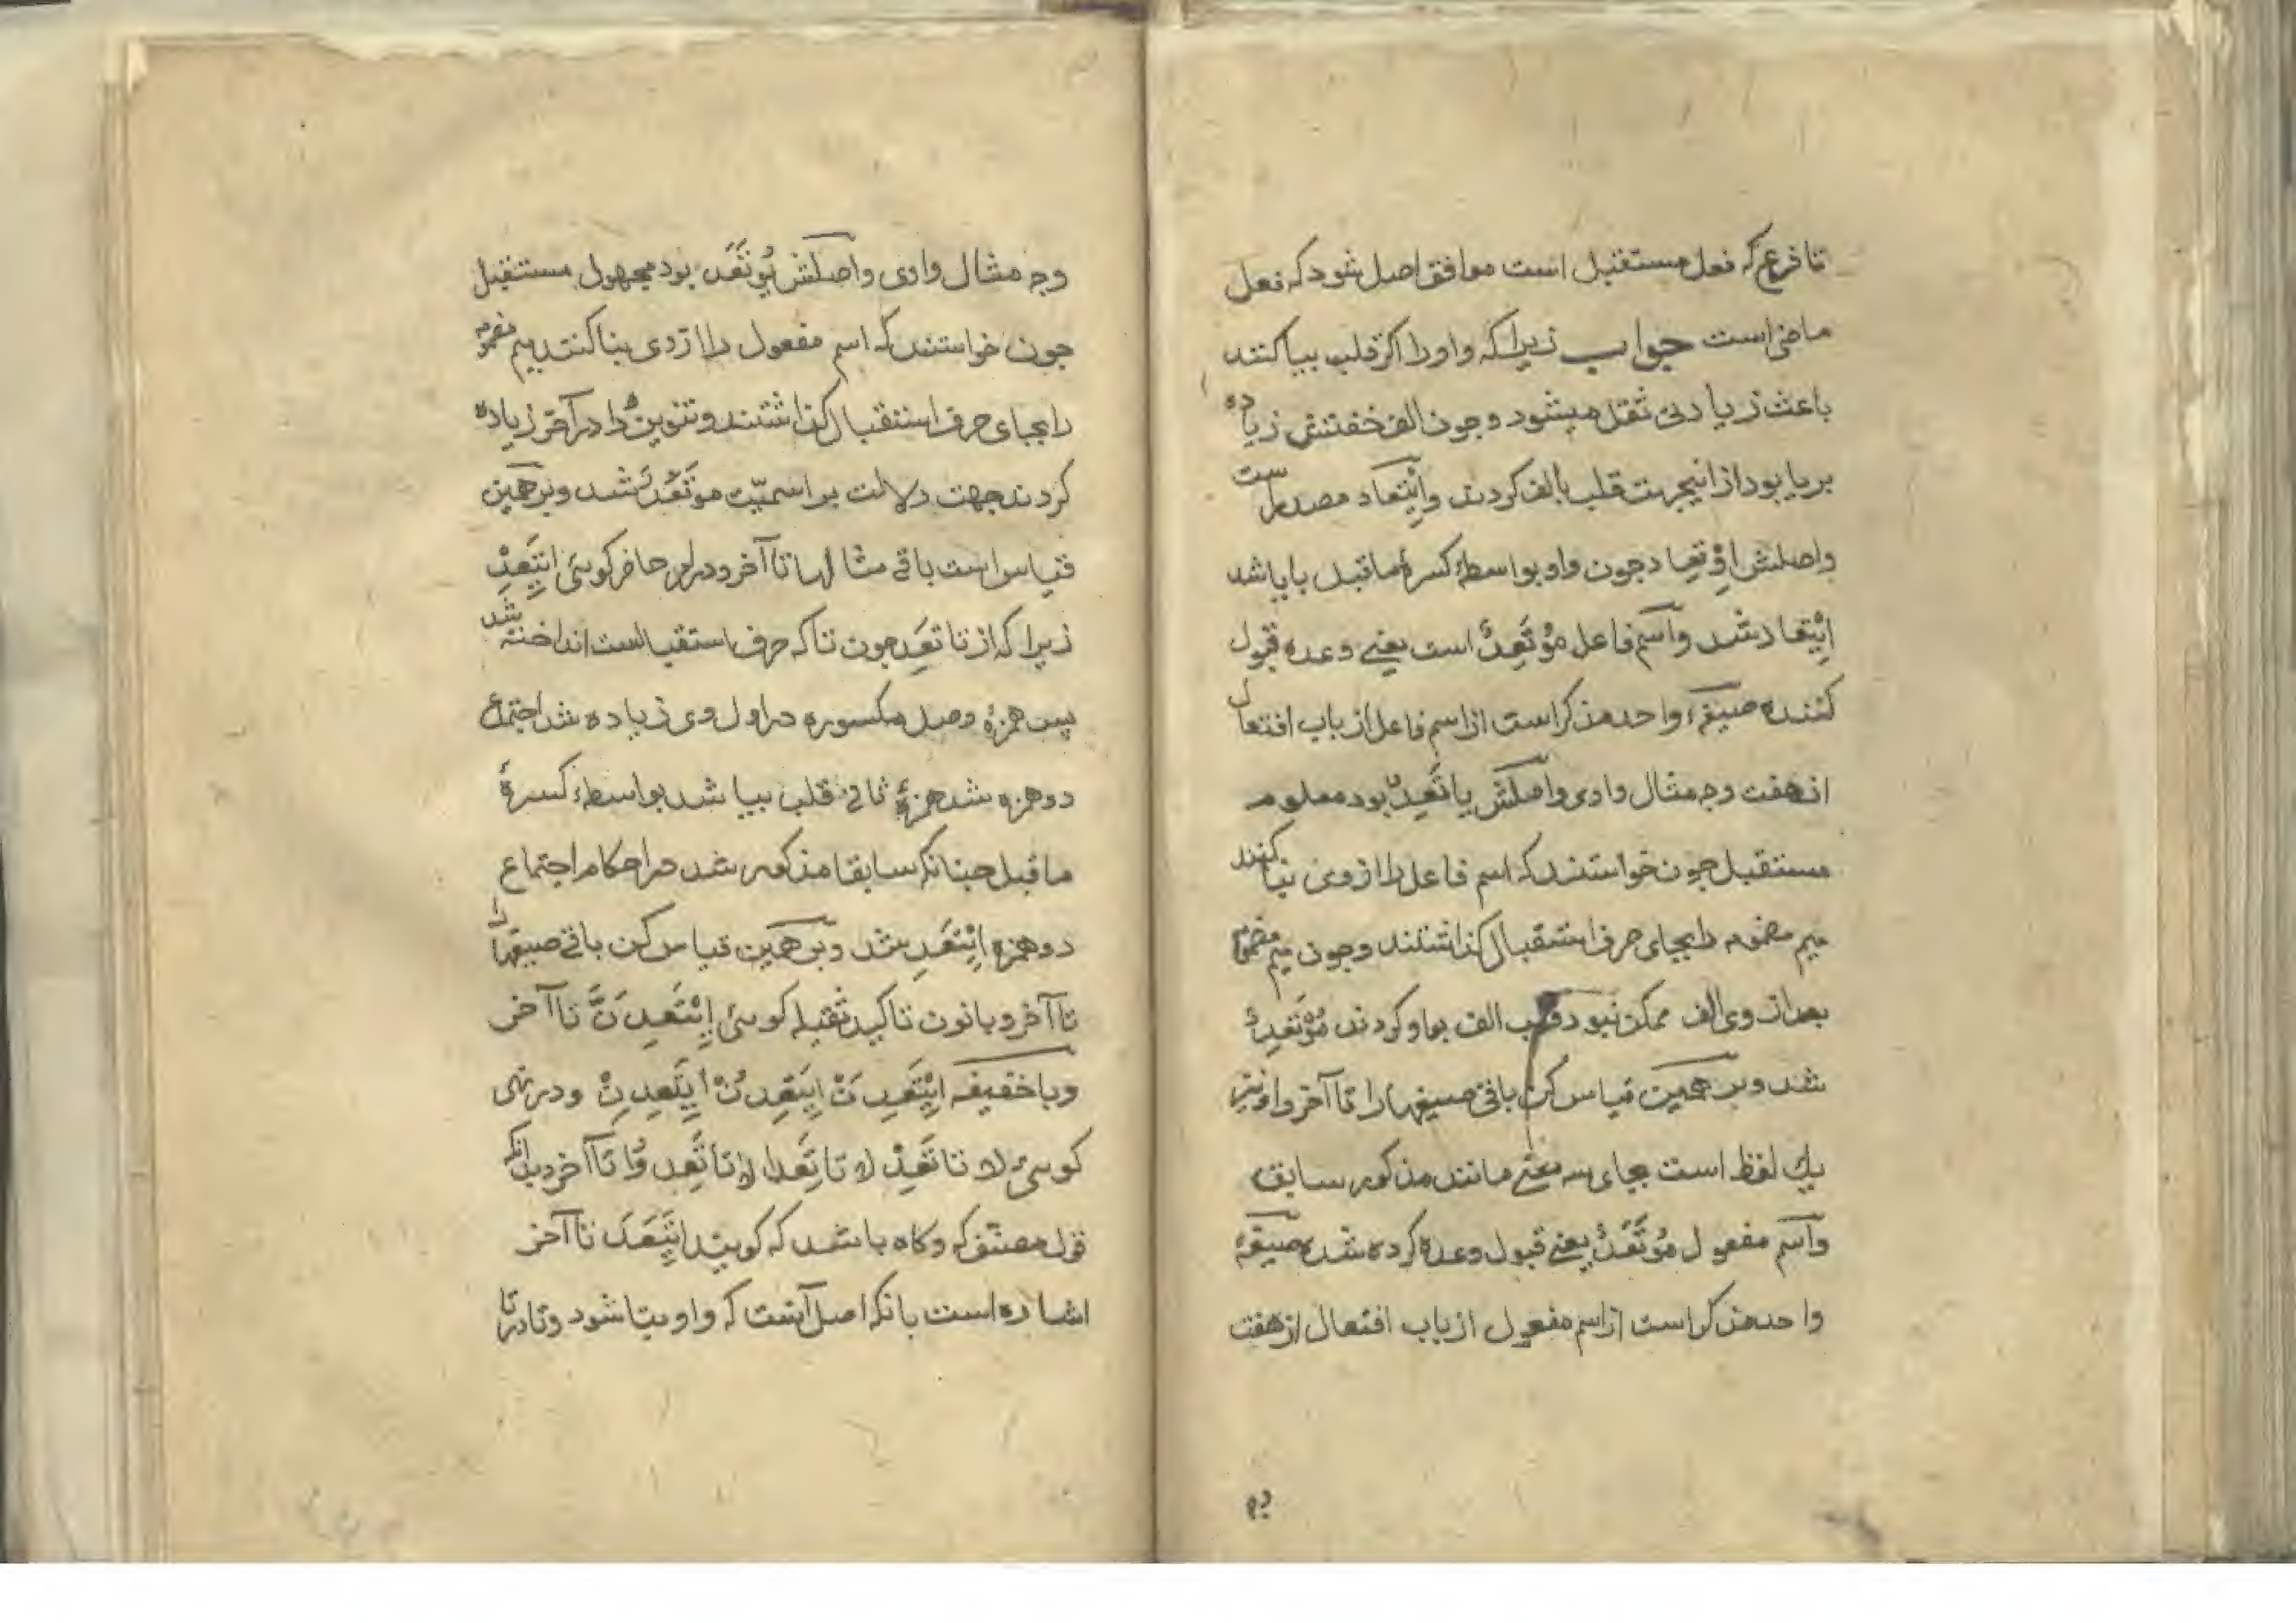 تا فرع که فعل مستقبل است موافق اصل شود که فعل
ماضی است جواب زیرا که واو را اکر قلب بیا کنند
باعث زیادتی ثقل میشود وجون الف خفتش زیاده
بر یا بود از انیجهت قلب بالف کردند وایْتِعاد مصدر است
واصلش اِوْتِعاد جون واو بواسطهٔ کسرهٔ ماقبل با یا شد
ایْتِعاد شد واسم فاعل مُوْتَعِدٌ است یعنے وعده قبول
کننده صیغهٔ واحد مذکر است از اسم فاعل از باب افتعال
از هفت وجه مثال واوی واصلش یاتَعِدُ بود معلوم
مستقبل جون خواستند که اسم فاعل را از وی بنا کنند
میم مضموم را بجای حرف استقبال کذاشتند وجون میم مضموم
بعد از وی الف ممکن نبود قلب الف بواو کردند مُوْتَعِدٌ
شد وبر همین قیاس کن باقی صیغها را تا آخر واو نیز
یك لفظ است بجای سه معنے مانند مذکور سابق
واسم مفعول مُوْتَعَدٌ یعنے قبول وعده کرده شده صیغهٔ
واحد مذکر است از اسم مفعول از باب افتعال از هفت
وجه مثال واوی واصلش یُوتَعَدُ بود مجهول مستقبل
جون خواستند که اسم مفعول را از وی بنا کنند میم مضموم
را بجای حرف استقبال کذاشتند وتنوین را در آخر زیاده
کردند جهت دلالت بر اسمیّت موتَعَدٌ شد وبر همین
قیاس است باقے مثالها تا آخر ودر امر حاضر کوئی ایتَعِدْ
زیرا که از تاتَعِد جون تا که حرف استقبالست انداخته شد
پس همزهٔ وصل مکسوره در اول وی زیاده شد اجتماع
دو همزه شد همزهٔ ثانی قلب بیا شد بواسطهٔ کسرهٔ
ماقبل جنانکه سابقا مذکور شد در احکام اجتماع
دو همزه ایْتَعِدِ شد وبر همین قیاس کن باقے صیغها را
تا آخر وبا نون تاکید ثقیله کوئی اِیْتَعِدَنَّ تا آخر
وبا خفیفه ایْتَعِدَنْ ایتَعِدُنْ ایتَعِدِنْ ودر نهی
کوئی لا تاتَعِدْ لا تاتَعِدا لا تاتَعِدوُا تا آخر بدانکه
قول مصنّف که وکاه باشد که کویند ایتَعَدَ تا آخر
اشاره است بانکه اصل آنست که واو بتا شود وتا در تا